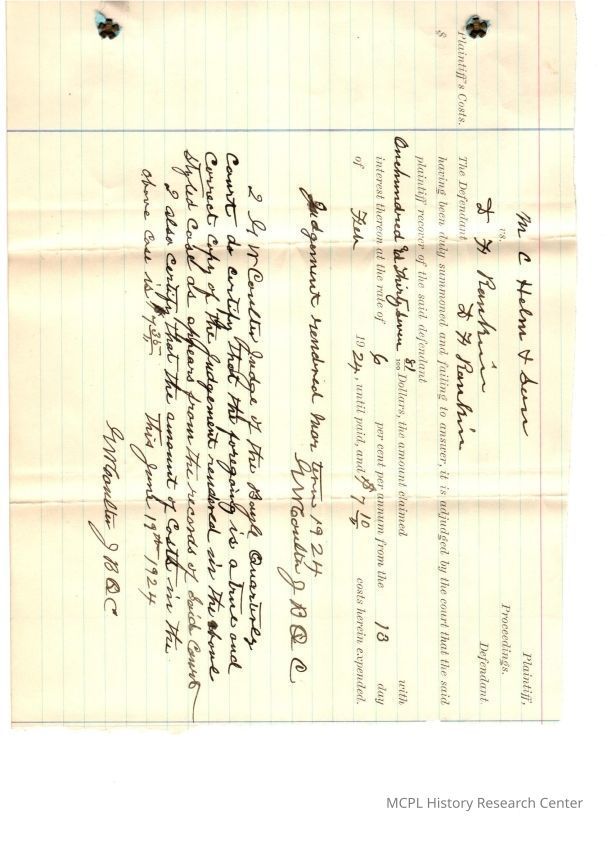 M C Helm & Son Plaintiff,
vs. Proceedings.
D H Rankin Defendant.
The Defendant D H Rankin
having been duly summoned and failing to answer, it is adjudged by the court that the said
plaintiff recover of the said defendant
One hundred & thirty seven 81/100 Dollars, the amount claimed with
interest thereon at the rate of 6 per cent per annum from the 13 day
of Feb 1924, until paid, and $7 10 costs herein expended.
Judgement rendred Mar term 1924
G W Coulter J B Q C
I G W Coulter Judge of the Boyle Quarterly
Court do certify that the foregoing is a true and
Correct copy of the Judgement rendered in the above
Styled case as appears from the records of said Court
I also certify that the amount of Costs in the
above case is $7 35 This June 19th 1924
G W Coulter J B Q C
Plaintiff's Costs.
$
MCPL History Research Center